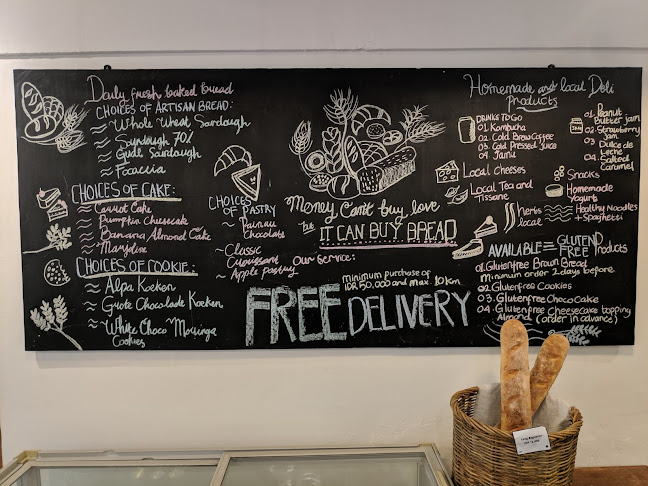 Daily fresh baked bread
CHOICES OF ARTISAN BREAD:
Whole Wheat Sourdough
Sourdough 70%
Gude Sourdough
Focaccia
CHOICES OF CAKE:
Carrot Cake
Pumpkin Cheesecake
Banana Almond Cake
CHOICES OF COOKIE:
Alpa Koeken
Grote Chocolade Koeken
White Choco Moringa
Cookies
CHOICES
OF PASTRY
Painau
Chocolate
Classic
Croissant
Apple pastry
Money Can't buy love
but
IT CAN BUY BREAD
OUR SERVICE:
minimum purchase of
IDR 50,000 and max. 10Km
FREE DELIVERY
Homemade and local Deli
Products
DRINKS TO GO
01 Kombucha
02. Cold Brew Coffee
03. Cold Pressed Juice
04. Jamu
01. Peanut
Butter Jam
02. Strawberry
Jam
03. Dulce de
Leche
04. Salted
Caramel
Local cheeses
Local Tea and
Tissane
herbs
local
Snacks
Homemade
Yogurt
Healthy Noodles
+ Spaghetti
AVAILABLE = GLUTEND FREE Products
01. Glutenfree Brown Bread
minimum order 2 days before
02 Glutenfree Cookies
03. Glutenfree Choco Cake
04. Glutenfree cheesecake topping
Almond (order in advance)